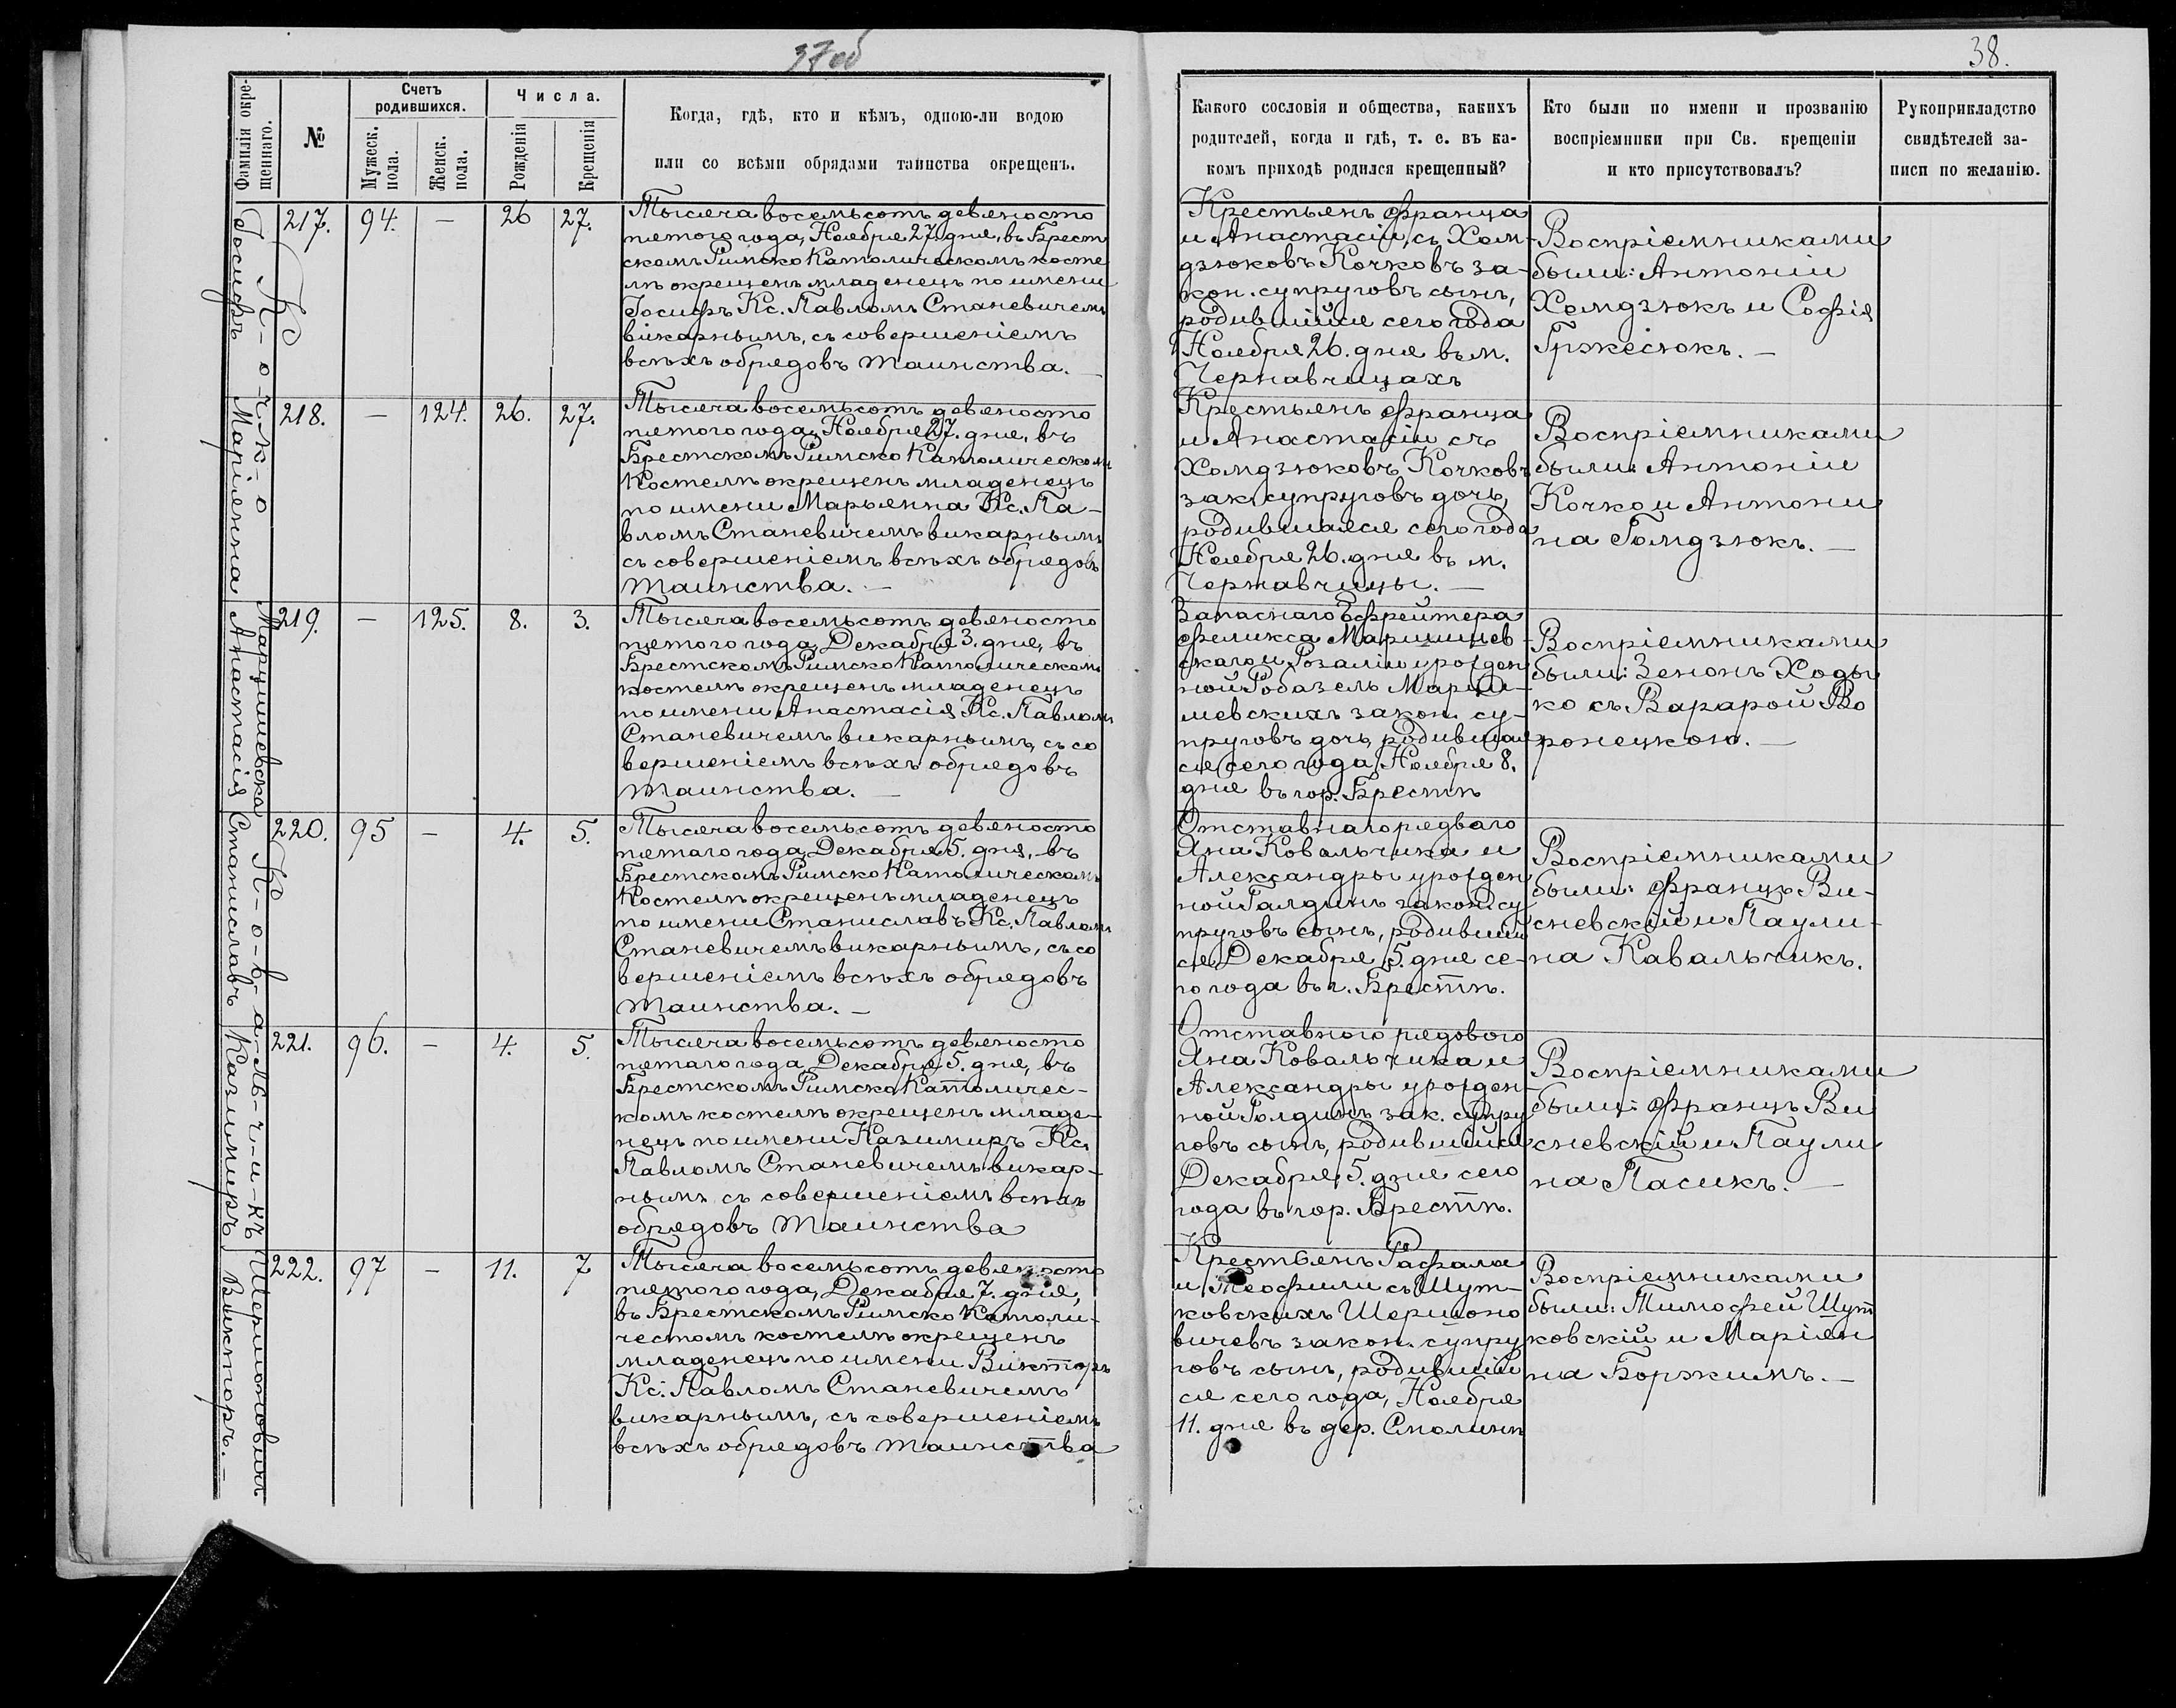 37 об
38.
Фамилія окре-
щеннаго.
№
Счетъ
родившихся.
Мужеск.
пола.
Женск.
пола.
Числа.
Рожденія
Крещенія
Когда, гдѣ, кто и кѣмъ, одною-ли водою
или со всѣми обрядами таинства окрещенъ.
Какого сословія и общества, какихъ
родителей, когда и гдѣ, т. е. въ ка-
комъ приходѣ родился крещенный?
Кто были по имени и прозванію
воспріемники при Св. крещеніи
и кто присутствовалъ?
Рукоприкладство
свидѣтелей за-
писи по желанію.
К-о-ч-к-о
Іосифъ
217. 94. — 26 27.
Тысяча восемьсотъ девяносто
пятого года, Ноября 27. дня, въ Брест
скомъ Римско Католическомъ косте
лѣ окрещенъ младенецъ по имени
Іосифъ Кс. Павломъ Станевичемъ
викарнымъ, съ совершеніемъ
всѣхъ обрядовъ таинства. —
Крестьянъ Франца
и Анастасіи, съ Хом-
дзюковъ Кочковъ за-
кон. супруговъ сынъ,
родившійся сего года
Ноября 26. дня въ м.
Чернавчицахъ
Воспріемниками
были: Антоніи
Хомдзюкъ и Софія
Гржесюкъ. —
Маріянна
218. — 124. 26. 27.
Тысяча восемьсотъ девяносто
пятого года, Ноября 27. дня, въ
Брестскомъ Римско Католическомъ
Костелѣ окрещенъ младенецъ
по имени Марьянна Кс. Па-
вломъ Станевичемъ викарнымъ
съ совершеніемъ всѣхъ обрядовъ
таинства. —
Крестьянъ Франца
и Анастасіи съ
Хомдзюковъ Кочковъ
зак. супруговъ дочь,
родившаяся сего года
Ноября 26. дня въ м.
Чернавчицы. —
Воспріемниками
были: Антоніи
Кочко и Антони
на Гомдзюкъ. —
Марцишевска
Анастасія
219. — 125. 8. 3.
Тысяча восемьсотъ девяносто
пятого года, Декабря 3. дня, въ
Брестскомъ Римско Католическомъ
костелѣ окрещенъ младенецъ
по имени Анастасія Кс. Павломъ
Станевичемъ викарнымъ, съ со
вершеніемъ всѣхъ обрядовъ
таинства. —
Запаснаго Ефрейтера
Феликса Марцишев-
скаго и Розаліи урожден
ной Робазель Марци-
шевскихъ закон. су-
пруговъ дочь, родившая
ся сего года, Ноября 8.
дня въ гор. Брестѣ
Воспріемниками
были: Зенонъ Ходы
ко съ Варарой Во
ронецкою. —
К-о-в-а-ль-ч-и-къ
Станиславъ
220. 95 — 4. 5.
Тысяча восемьсотъ девяносто
пятаго года, Декабря 5. дня, въ
Брестскомъ Римско Католическомъ
Костелѣ окрещенъ младенецъ
по имени Станиславъ Кс. Павломъ
Станевичемъ викарнымъ, съ со
вершеніемъ всѣхъ обрядовъ
таинства. —
Отставнаго рядваго
Яна Ковальчика и
Александры урожден
ной Галдинъ закон. су
пруговъ сынъ, родивший
ся Декабря 5. дня се-
го года въ г. Брестѣ.
Воспріемниками
были: Францъ Ви-
сневскій и Паули-
на Кавальчикъ.
Казимиръ
221. 96. — 4. 5.
Тысяча восемьсотъ девяносто
пятаго года, Декабря 5. дня, въ
Брестскомъ Римско Католичес-
комъ костелѣ окрещенъ младе-
нецъ по имени Казимиръ Кс.
Павломъ Станевичемъ викар-
нымъ съ совершеніемъ всѣхъ
обрядовъ таинства
Отставного рядового
Яна Ковальчика и
Александры урожден-
ной Голдинъ зак. супру
говъ сынъ, родившійся
Декабря, 5. дня сего
года въ гор. Брестѣ.
Воспріемниками
были: Францъ Ви
сневскій и Паули
на Пасикъ. —
Шермоновичъ
Викторъ. —
222. 97 — 11. 7
Тысяча восемьсотъ девяносто
пятого года, Декабря 7. дня,
въ Брестскомъ Римско Католи-
честомъ костелѣ окрещенъ
младенецъ по имени Викторъ
Кс. Павломъ Станевичемъ
викарнымъ, съ совершеніемъ
всѣхъ обрядовъ таинства
Крестьянъ Рафала
и Теофили съ Шут-
ковскихъ Шермоно
вичевъ закон. супру
говъ сынъ, родившій
ся сего года, Ноября
11. дня въ дер. Смолинѣ
Воспріемниками
были: Тимофей Шут
ковскій и Маріян
на Боржимъ. —